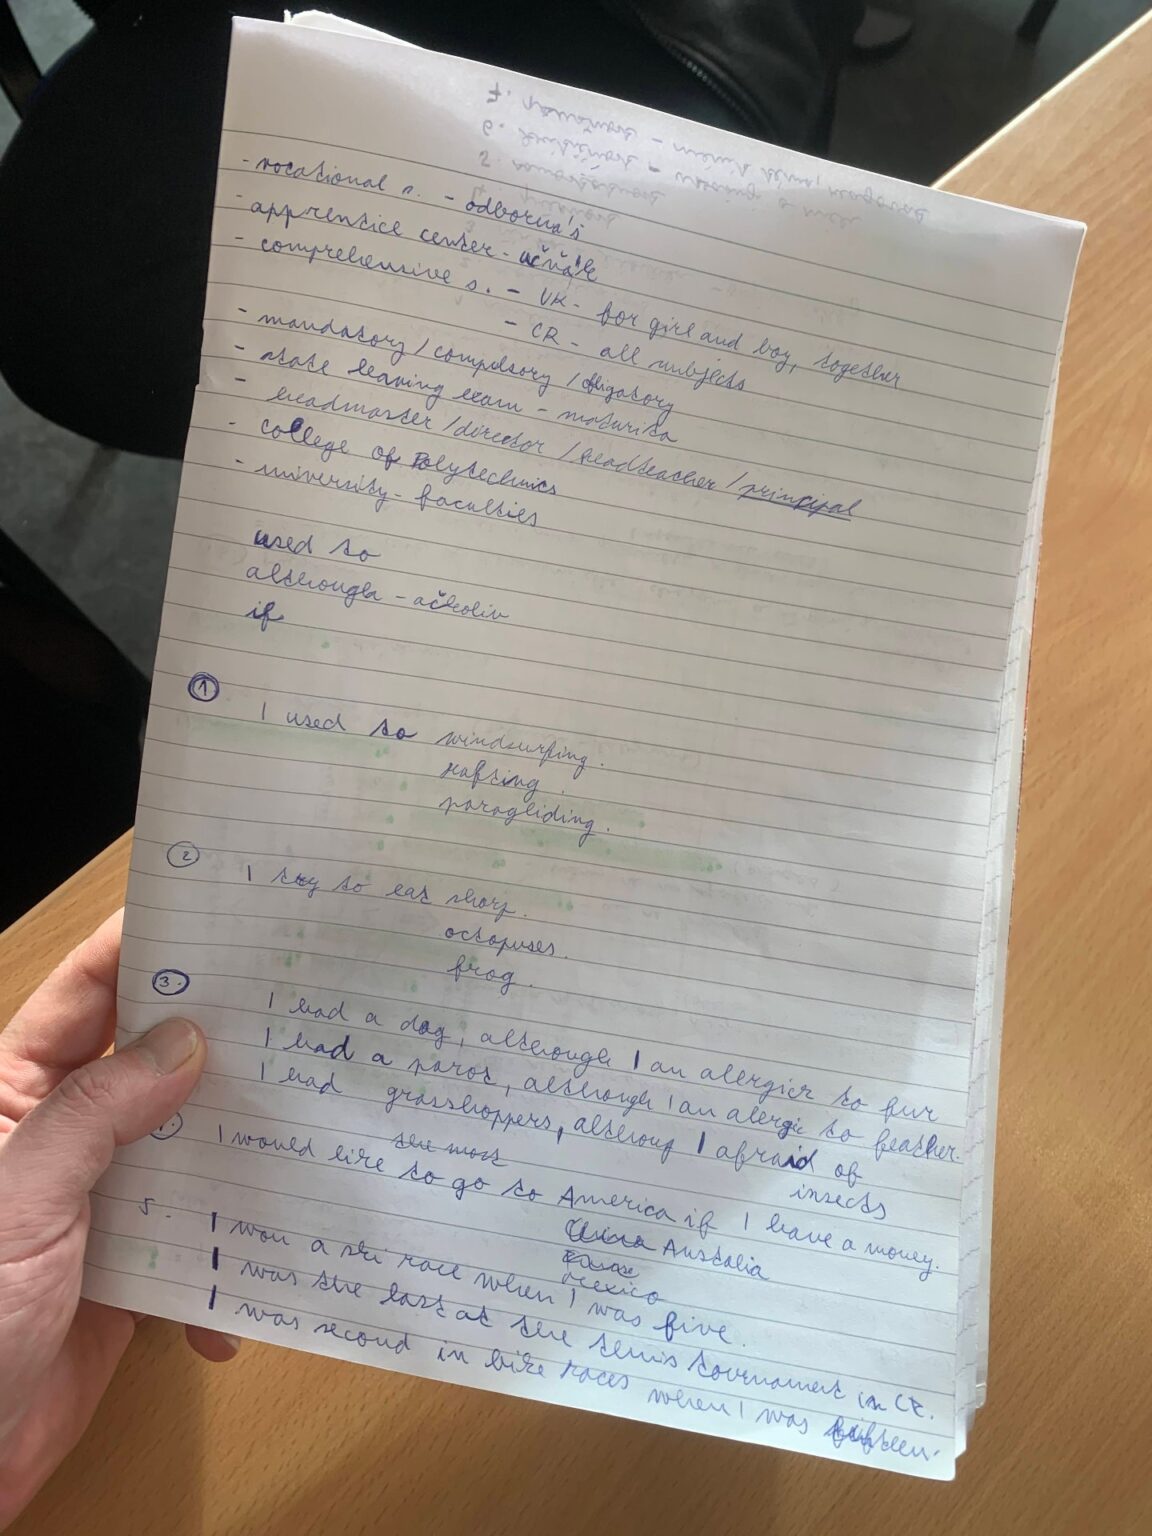 - vocational s. - odborná š
- apprentice center - učňák
- comprehensive s. - UK - for girl and boy, together
- CR - all subjects
- mandatory / compulsory / obligatory
- state leaving exam - maturita
- headmaster / director / headteacher / principal
- college of Polytechnics
- university - faculties
used to
although - ačkoliv
if
1
I used to windsurfing.
rafting.
paragliding.
2
I try to eat
octopuses.
frog.
3.
I had a dog, although I an alergic to fur
I had a parot, although I an alergic to feather.
I had grasshoppers, althoug I afraid of
insects
I would like to go to America if I have a money.
China Australia
Mexico
5.
I won a ski race when I was five.
I was the last at the tennis tournament in CR.
I was second in bike races when I was fifteen.